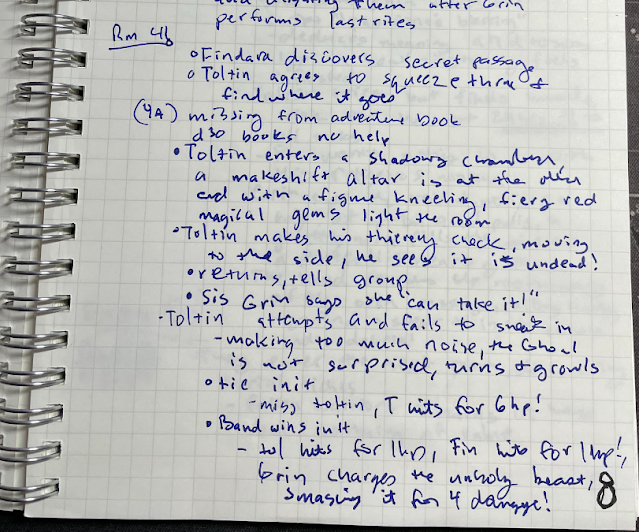 them after Grin
performs last rites
Rm 4b
Findara discovers secret passage
Toltin agrees to squeeze thru &
find where it goes
(4A) missing from adventure book
d30 books no help
Toltin enters a shadowy chamber,
a makeshift altar is at the other
end with a figure kneeling, fiery red
magical gems light the room
Toltin makes his thievery check, moving
to the side, he sees it is undead!
returns, tells group
Sis Grin says she "can take it!"
- Toltin attempts and fails to sneak in
- making too much noise, the Ghoul
is not surprised, turns & growls
tie init
- miss toltin, T hits for 6hp!
Band wins init
- tol hits for 1hp, Fin hits for 1hp!,
Grin charges the unholy beast,
smasing it for 4 damage!
8